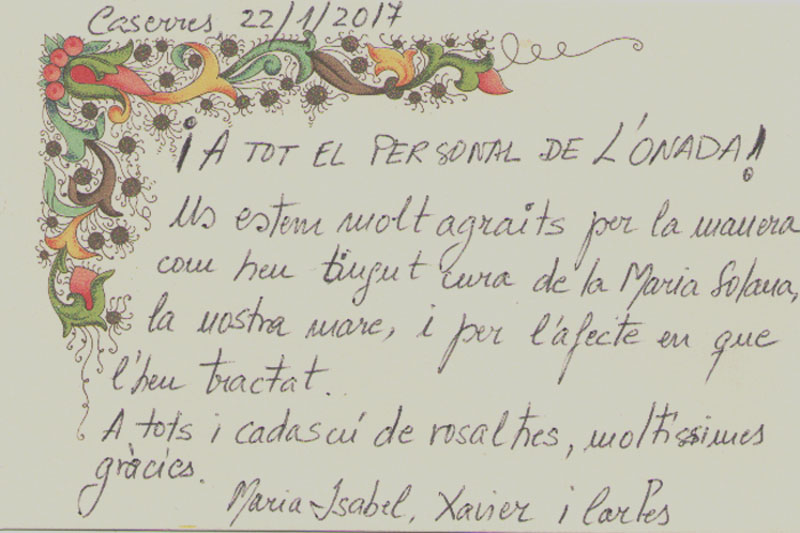 Caserres, 22/1/2017
¡A TOT EL PERSONAL DE L'ONADA!
Us estem molt agraits per la manera
com heu tingut cura de la Maria Solana,
la nostra mare, i per l'afecte en que
l'heu tractat.
A tots i cadascú de vosaltres, moltíssimes
gràcies.
Maria-Isabel, Xavier i Carles